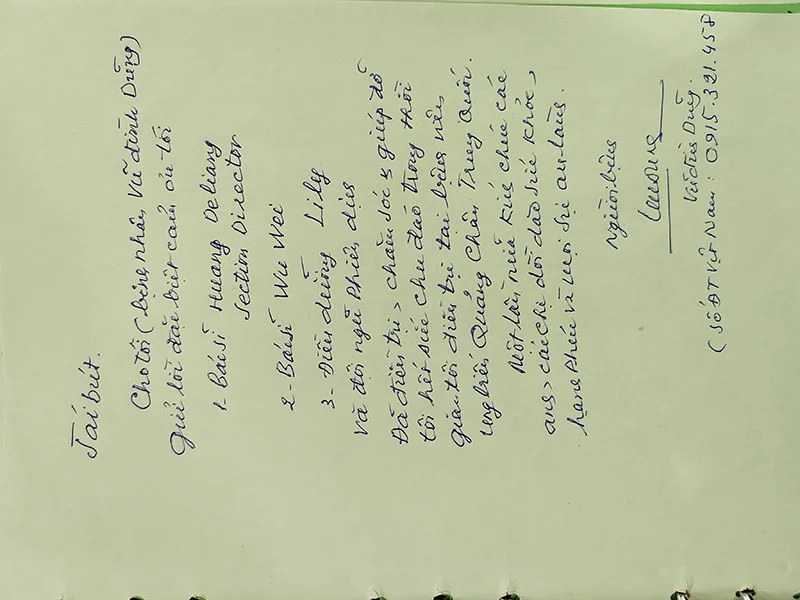 Tái bút.
Cho tôi (bệnh nhân Vũ Đình Dũng)
gửi lời đặc biệt cảm ơn tới
1- Bác sĩ Huang Deliang
Section Director
2- Bác sĩ Wu Wei
3- Điều dưỡng Lily
Và đội ngũ phiên dịch
Đã điều trị, chăm sóc, giúp đỡ
tôi hết sức chu đáo trong thời
gian tôi điều trị tại bệnh viện
ung biếu Quảng Châu Trung Quốc.
Một lần nữa kính chúc các
anh, các chị dồi dào sức khỏe,
hạnh phúc và mọi sự an lành.
Người bệnh
Vũ Đình Dũng.
(Số ĐT Việt Nam: 0915.321.458